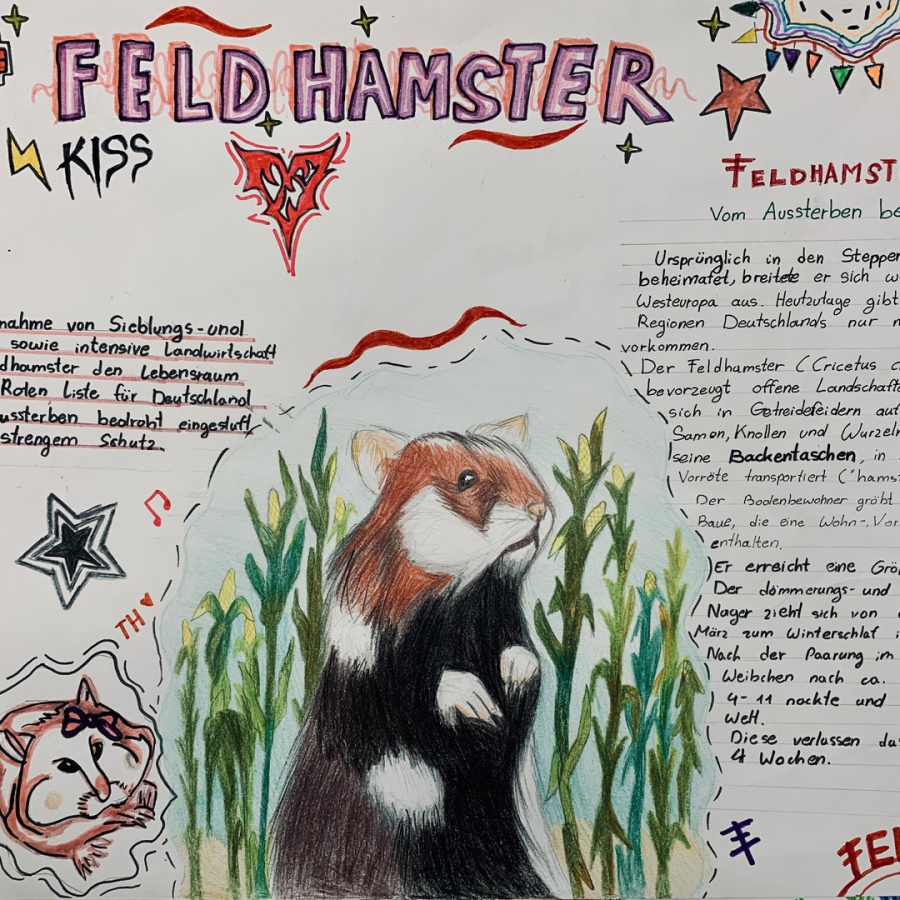 FELDHAMSTER
KISS
nahme von Sieblungs-und
sowie intensive Landwirtschaft
dhamster den Lebensraum
Roten Liste für Deutschland
ussterben bedroht eingestuft
strengem Schutz.
TH
FELDHAMST
Vom Aussterben be
Ursprünglich in den Steppen
beheimatet, breitete er sich w
Westeuropa aus. Heutzutage gibt
Regionen Deutschlands nur n
vorkommen.
Der Feldhamster (Cricetus c
bevorzugt offene Landschaft
sich in Getreidefeldern auf
Samen, Knollen und Wurzeln
seine Backentaschen, in
Vorröte transportiert ("hams
Der Bodenbewohner gräbt
Baue, die eine Wohn-, Vor
enthalten.
Er erreicht eine Grö
Der dämmerungs- und
Nager zieht sich von
März zum Winterschlaf i
Nach der Paarung im
Weibchen nach ca.
4-11 nackte und
Welt.
Diese verlassen da
4 Wochen.
FEL